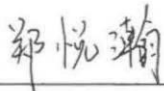 郑悦瀚